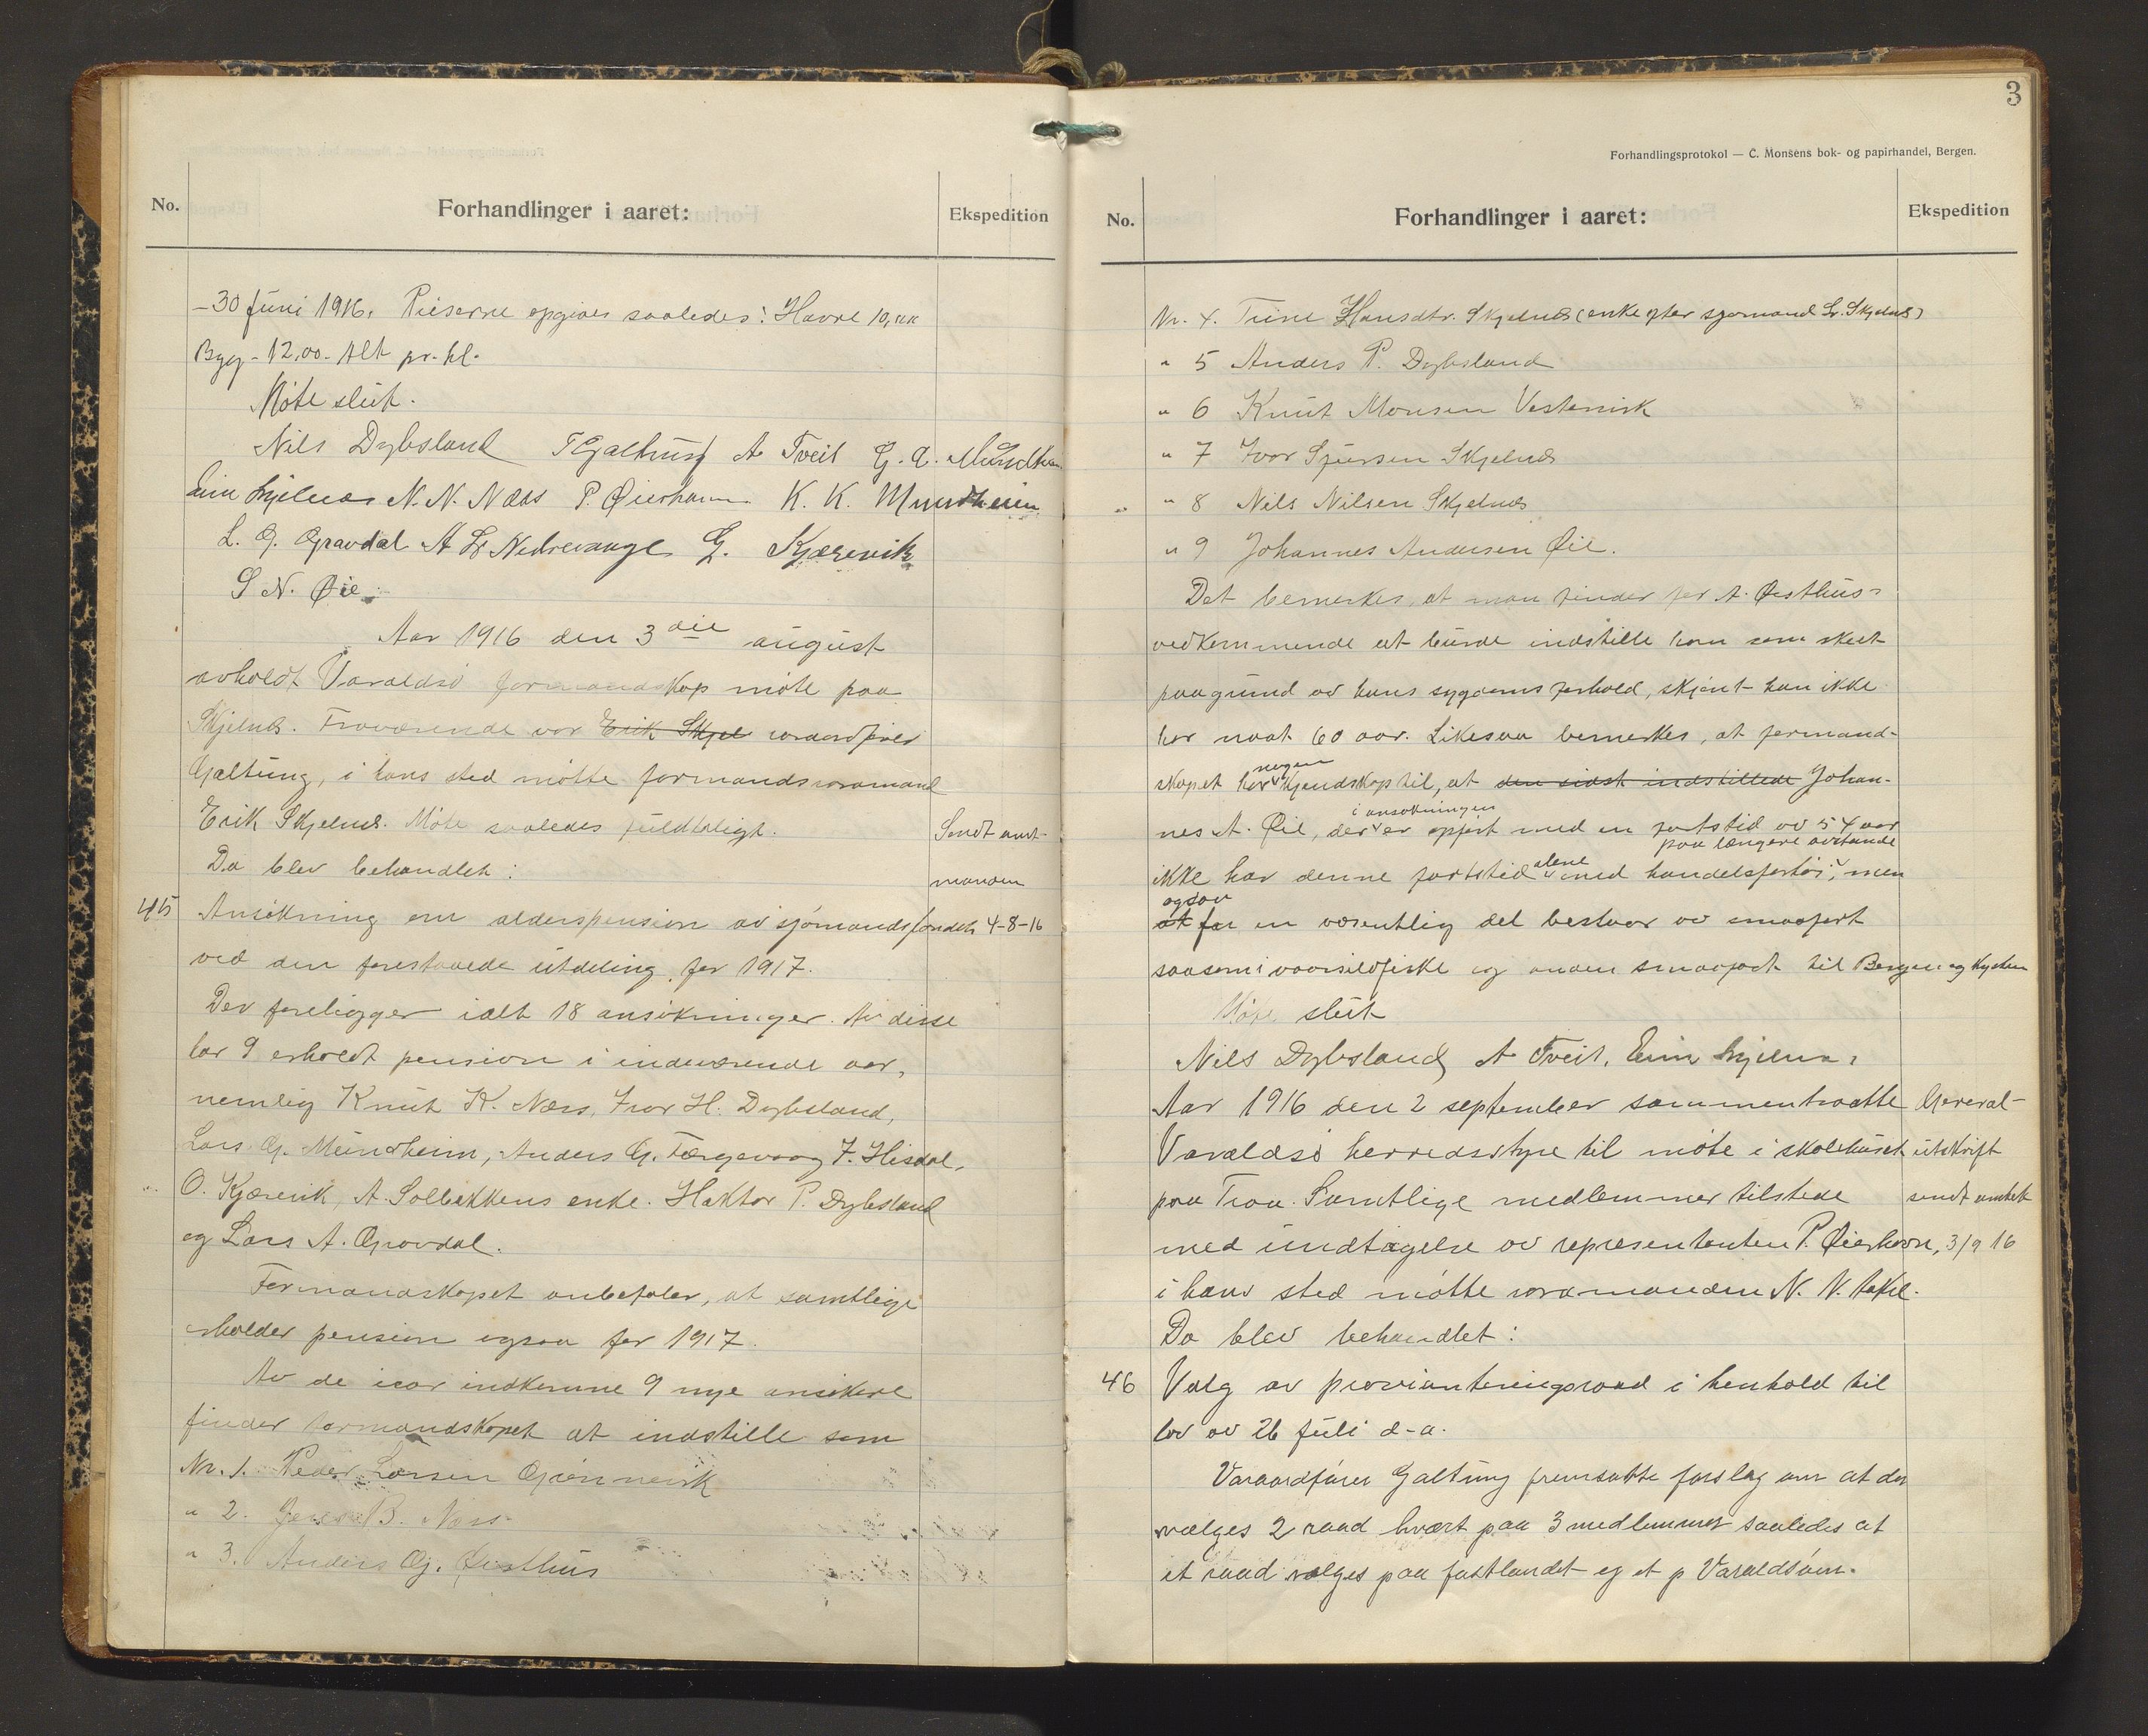 No.
Forhandlinger i aaret:
Ekspedition
- 30 juni 1916. Priserne opgives saaledes: Havre 10,00
Byg - 12,00. Alt pr. hl.
Møte slut.
Nils Dybsland T Galtung A Tveit G. A. Mundheim
Erik Skjelnes N. N. Næss P. Øierhavn K. K. Mundheim
L. G. Gravdal A L Nedrevaage G. Kjærevik
S N. Øie
Aar 1916 den 3die august
avholdt Varaldsö formandskap möte paa
Skjelnæs. Fraværende var Erik Skjel varaordfører
Galtung, i hans sted mötte formandsvaramand
Erik Skjelnæs. Möte saaledes fuldtaligt.
Sendt amt-
Da blev behandlet:
manden
45 Ansökning om alderspension av sjömandsfondet
4-8-16
ved den forestaaede utdeling for 1917.
Der foreligger ialt 18 ansökninger. Av disse
har 9 erholdt pension i indeværende aar,
nemlig Knut K. Næss, Ivar H. Dybsland,
Lars G. Mundheim, Anders G. Færgevaag J. Hisdal,
O. Kjærevik, A. Solbakkens enke. Haktor P. Dybsland
og Lars A. Gravdal.
Formandskapet anbefaler, at samtlige
erholder pension ogsaa for 1917.
Av de iaar indkomne 9 nye ansökere
finder formandskapet at indstille som
Nr. 1. Peder Larsen Grønnevik
" 2. B. Næss
" 3. Anders Gj. Øisthus
3
Forhandlingsprotokol — C. Monsens bok- og papirhandel, Bergen.
No.
Forhandlinger i aaret:
Ekspedition
Nr. 4. Trine Hansdtr. Skjelnæs (enke efter sjømand L. Skjelnæs)
" 5 Anders P. Dybsland
" 6 Knut Monsen Vestervik
" 7 Ivar Sjursen Skjelnæs
" 8 Nils Nilsen Skjelnæs
" 9 Johannes Andersen Øie.
Det bemerkes, at man finder for A. Øisthus-
vedkommende at burde indstille ham som sket
paa grund av hans sygdoms forhold, skjönt han ikke
har naat 60 aar. Likesaa bemerkes, at formand-
skapet har nogen kjendskap til, at den sidst indstillede Johan-
nes A. Øie, der i ansökningen er opfört med en fartstid av 54 aar
ikke har denne fartstid alene med handelsfartöi paa længere avstande, men
at ogsaa for en væsentlig del bestaar av smaafart
saasom i vaarsildfiske og anden smaafart til Bergen og kysten
Möte slut
Nils Dybsland A Tveit. Erik Skjelnæs
Aar 1916 den 2 september sammentraatte
General-
Varaldsö herredsstyre til möte i skolehuset
utskrift
paa Traa. Samtlige medlemmer tilstede
sendt amtet
med undtagelse av repræsentanten P. Øierhavn,
3/9 16
i hans sted mötte varamanden N. N.
Da blev behandlet:
46 Valg av provianteringsraad i henhold til
lov av 26 juli d. a.
Varaordfører Galtung fremsatte forslag om at der
vælges 2 raad hvert paa 3 medlemmer saaledes at
et raad vælges paa fastlandet og et p Varaldsöen.